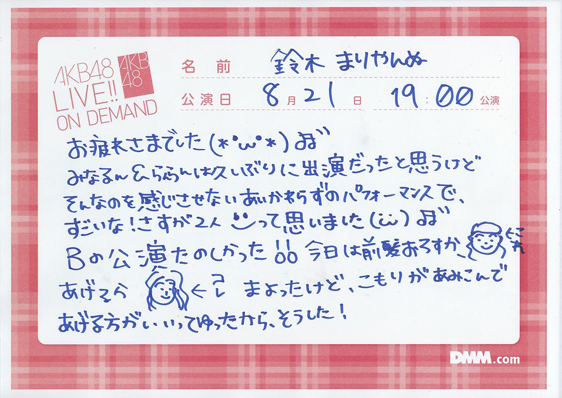 AKB48
LIVE!!
ON DEMAND
AKB
48
名 前 鈴木 まりやんぬ
公演日 8月21日 19:00公演
お疲れさまでした(*'ω'*)
みなるん&ららんは久しぶりに出演だったと思うけど
そんなのを感じさせないあいかわらずのパフォーマンスで、
すごいな!さすが2人って思いました
Bの公演たのしかった!! 今日は前髪おろすか ←これ
あげてら ←コレ まよったけど、こもりがあみこんで
あげる方がいいってゆったから、そうした!
DMM.com